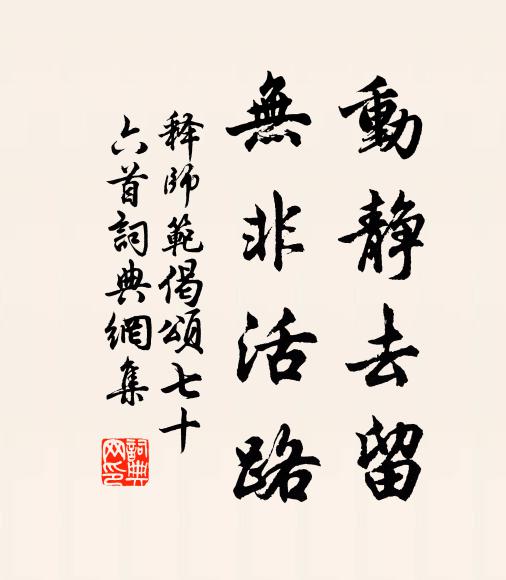 動静去留
無非活路
释師範偈頌七十
六首詞典網集
詞典网印